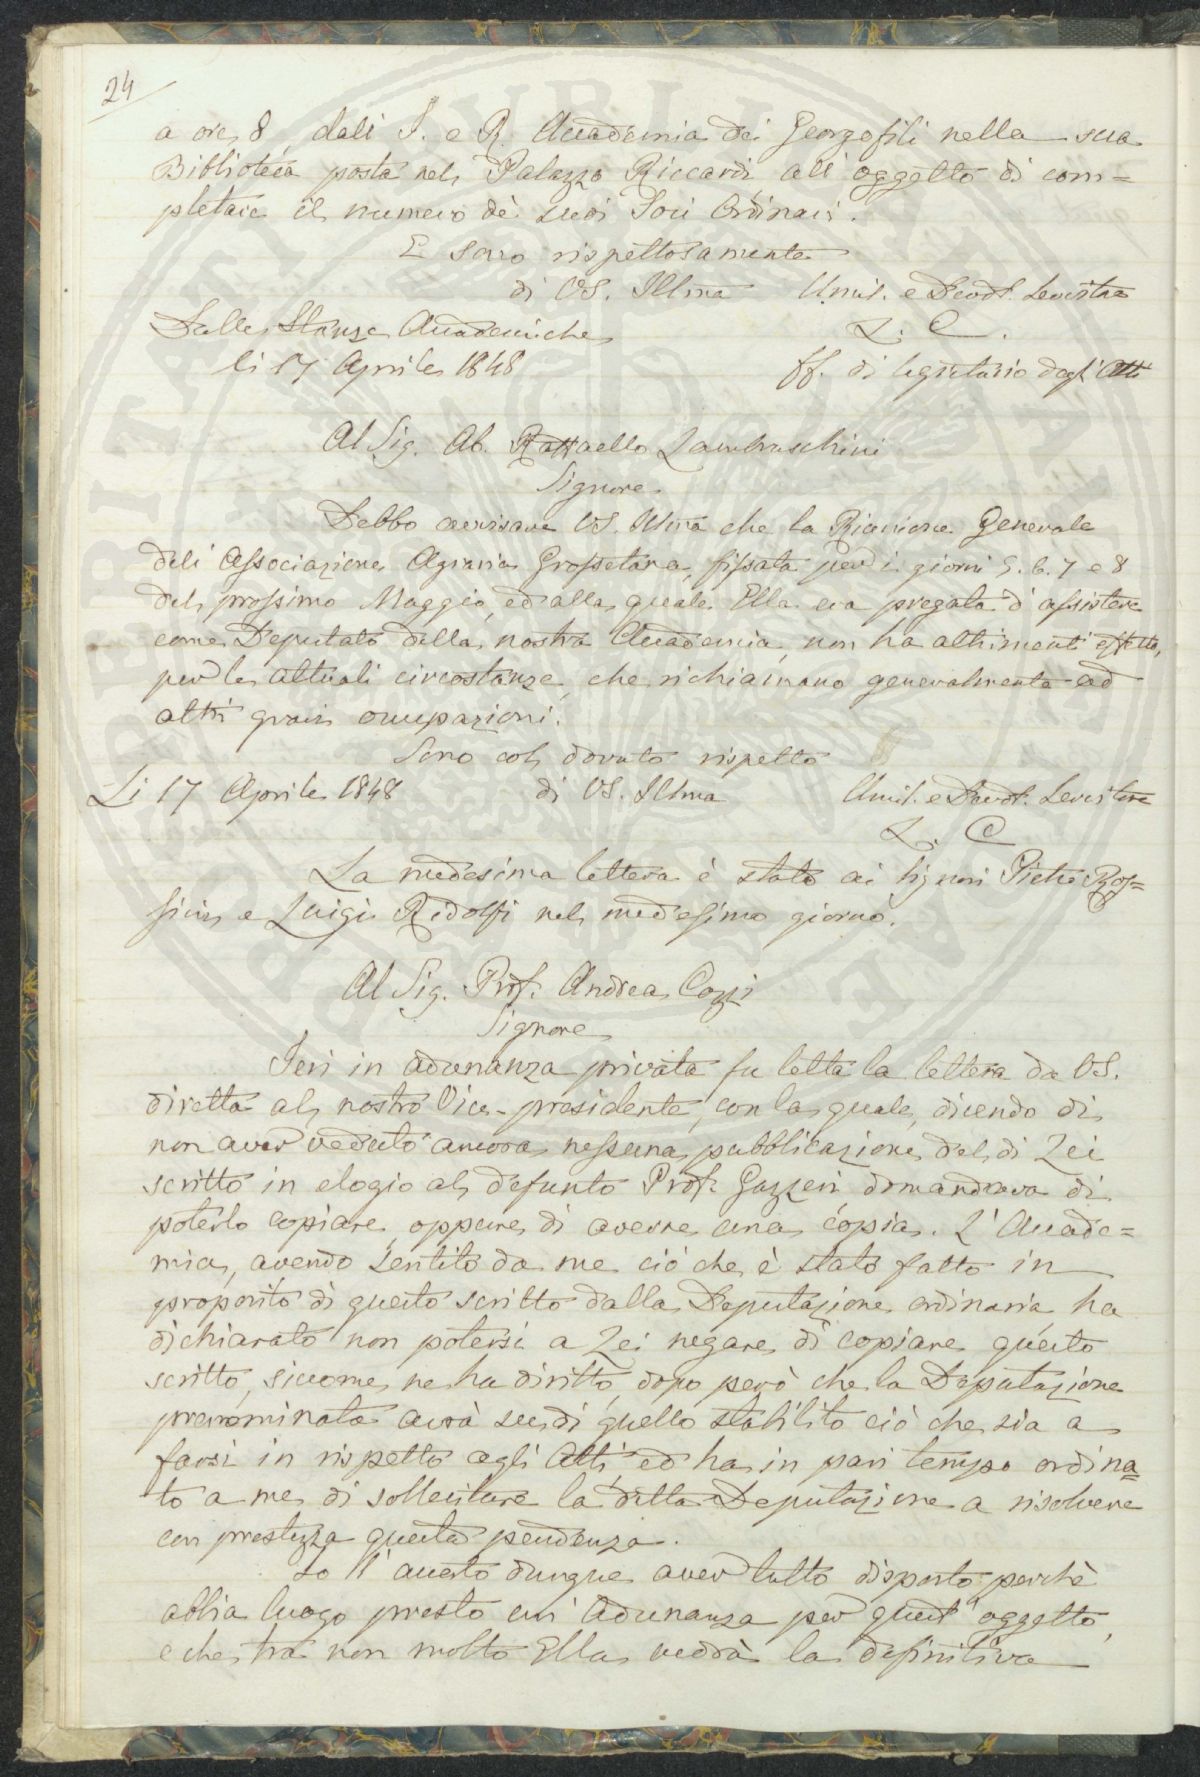 24
a ore 8, dall' I. e R. Accademia dei Georgofili nella sua
Biblioteca posta nel Palazzo Riccardi all' oggetto di com=
pletare il numero de' suoi Soci Ordinari.
E sono rispettosamente
di VS. Illma Umil. e Devot. Servitore
Dalle Stanze Accademiche L. C.
li 17 Aprile 1848 ff. di Segretario degli Atti
Al Sig. Ab. Raffaello Lambruschini
Signore
Debbo avvisare VS. Illma che la Riunione Generale
dell' Associazione Agraria Grossetana, fissata per i giorni 5. 6. 7 e 8
del prossimo Maggio, ed alla quale Ella era pregata d' assistere
come Deputato della nostra Accademia, non ha altrimenti effetto,
per le attuali circostanze, che richiamano generalmente ad
altri gravi occupazioni.
Sono col dovuto rispetto
Li 17 Aprile 1848 di VS. Illma Umil. e Devot. Servitore
L. C
La medesima lettera è stata ai Signori Pietro
e Luigi Ridolfi nel medesimo giorno.
Al Sig. Prof. Andrea Cozzi
Signore
Ieri in adunanza privata fu letta la lettera da VS.
diretta al nostro Vice-presidente, con la quale, dicendo di
non aver veduto ancora nessuna pubblicazione del di Lei
scritto in elogio al defunto Prof. Gazzeri, domandava di
poterlo copiare, oppure di averne una copia. L' Accade=
mia, avendo sentito da me ciò che è stato fatto in
proposito di questo scritto dalla Deputazione ordinaria, ha
dichiarato non potersi a Lei negare di copiare questo
scritto, siccome ne ha diritto, dopo però che la Deputazione
prenominata avrà su di quello stabilito ciò che sia a
farsi in rispetto agli Atti, ed ha in pari tempo ordina=
to a me di sollecitare la detta Deputazione a risolvere
con prestezza questa pendenza.
Io l' accerto dunque aver tutto disposto perchè
abbia luogo presto un' Adunanza per quest' oggetto,
e che tra non molto Ella vedrà la definitiva